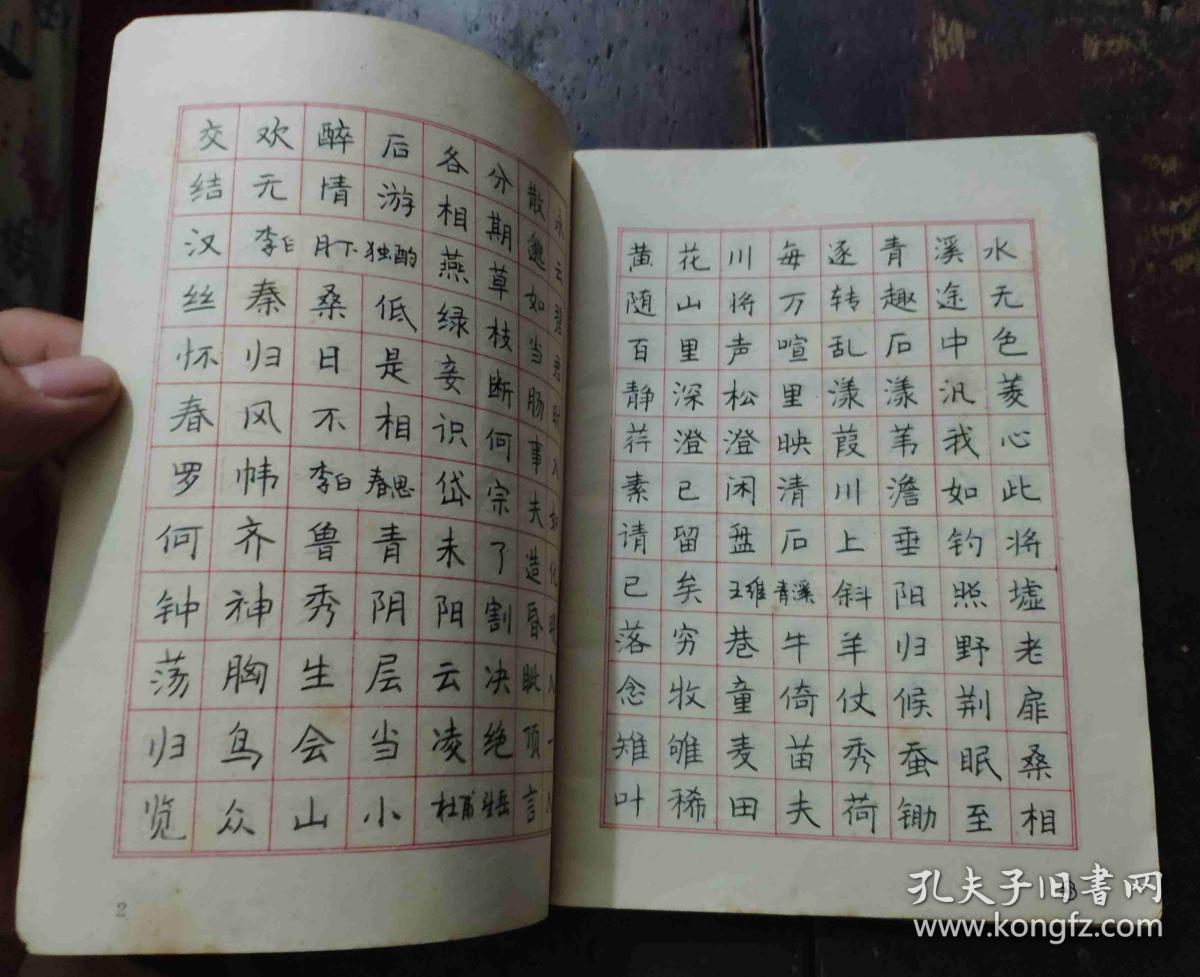 交欢醉后各分散永
结无情游相期邈云
汉李白月下独酌燕草如碧
丝秦桑低绿枝当君
怀归日是妾断肠时
春风不相识何事入
罗帏李白春思岱宗夫如
何齐鲁青未了造化
钟神秀阴阳割昏晓
荡胸生层云决眦入
归鸟会当凌绝顶一
览众山小杜甫望岳言入
2
黄花川每逐青溪水
随山将万转趣途无
百里声喧乱石中色
静深松里漾漾汎菱
荇澄澄映葭苇我心
素已闲清川澹如此
请留盘石上垂钓将
已矣王维青溪斜阳照墟
落穷巷牛羊归野老
念牧童倚仗候荆扉
雉雊麦苗秀蚕眠桑
叶稀田夫荷锄至相
孔夫子旧书网
www.kongfz.com